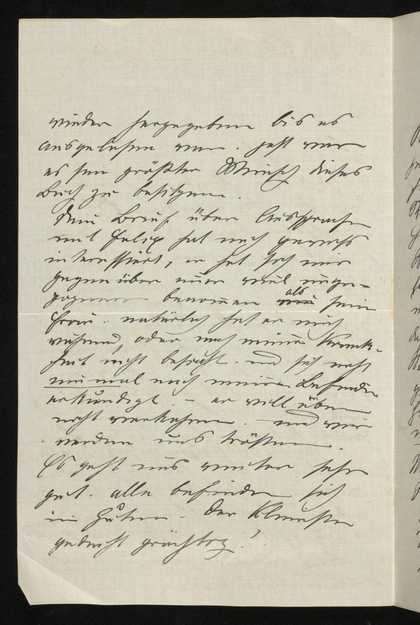 wieder hergegeben bis es
ausgelesen war. jetzt war
es sein größter Wunsch dieses
Buch zu besitzen.
Dein Brief über Aussprache
mit Felix hat mich
interessiert, er hat sich mir
gegenüber nur viel unge-
zogener benommen als sein
Frau. natürlich hat er mich
während oder nach meiner Krank-
heit nicht besucht. und sich nicht
einmal nach meinem Befinden
erkundigt. – er will
nicht verkehren. und wir
werden uns trösten.
Es geht uns weiter sehr
gut. alle befinden sich
im Guten. Der Kleinste
gedeiht prächtig!